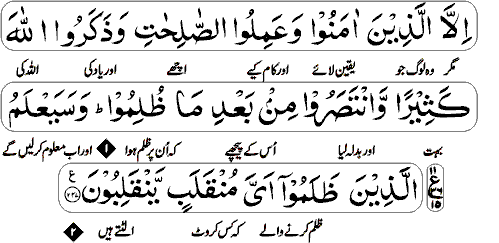 اِلَّا الَّذِيْنَ اٰمَنُوْا وَعَمِلُوا الصّٰلِحٰتِ وَذَكَرُوا اللّٰهَ
مگر وہ لوگ جو یقین لائے اور کام کیے اچھے اور یاد کی اللہ کی
كَثِيْرًا وَّانْتَصَرُوْا مِنْۢ بَعْدِ مَا ظُلِمُوْا ؕ وَسَيَعْلَمُ
بہت اور بدلہ لیا اُس کے پیچھے کہ اُن پر ظلم ہوا ۱ اور اب معلوم کر لیں گے
الَّذِيْنَ ظَلَمُوْۤا اَیَّ مُنْقَلَبٍ يَّنْقَلِبُوْنَ
ظلم کرنے والے کہ کس کروٹ الٹتے ہیں ۲